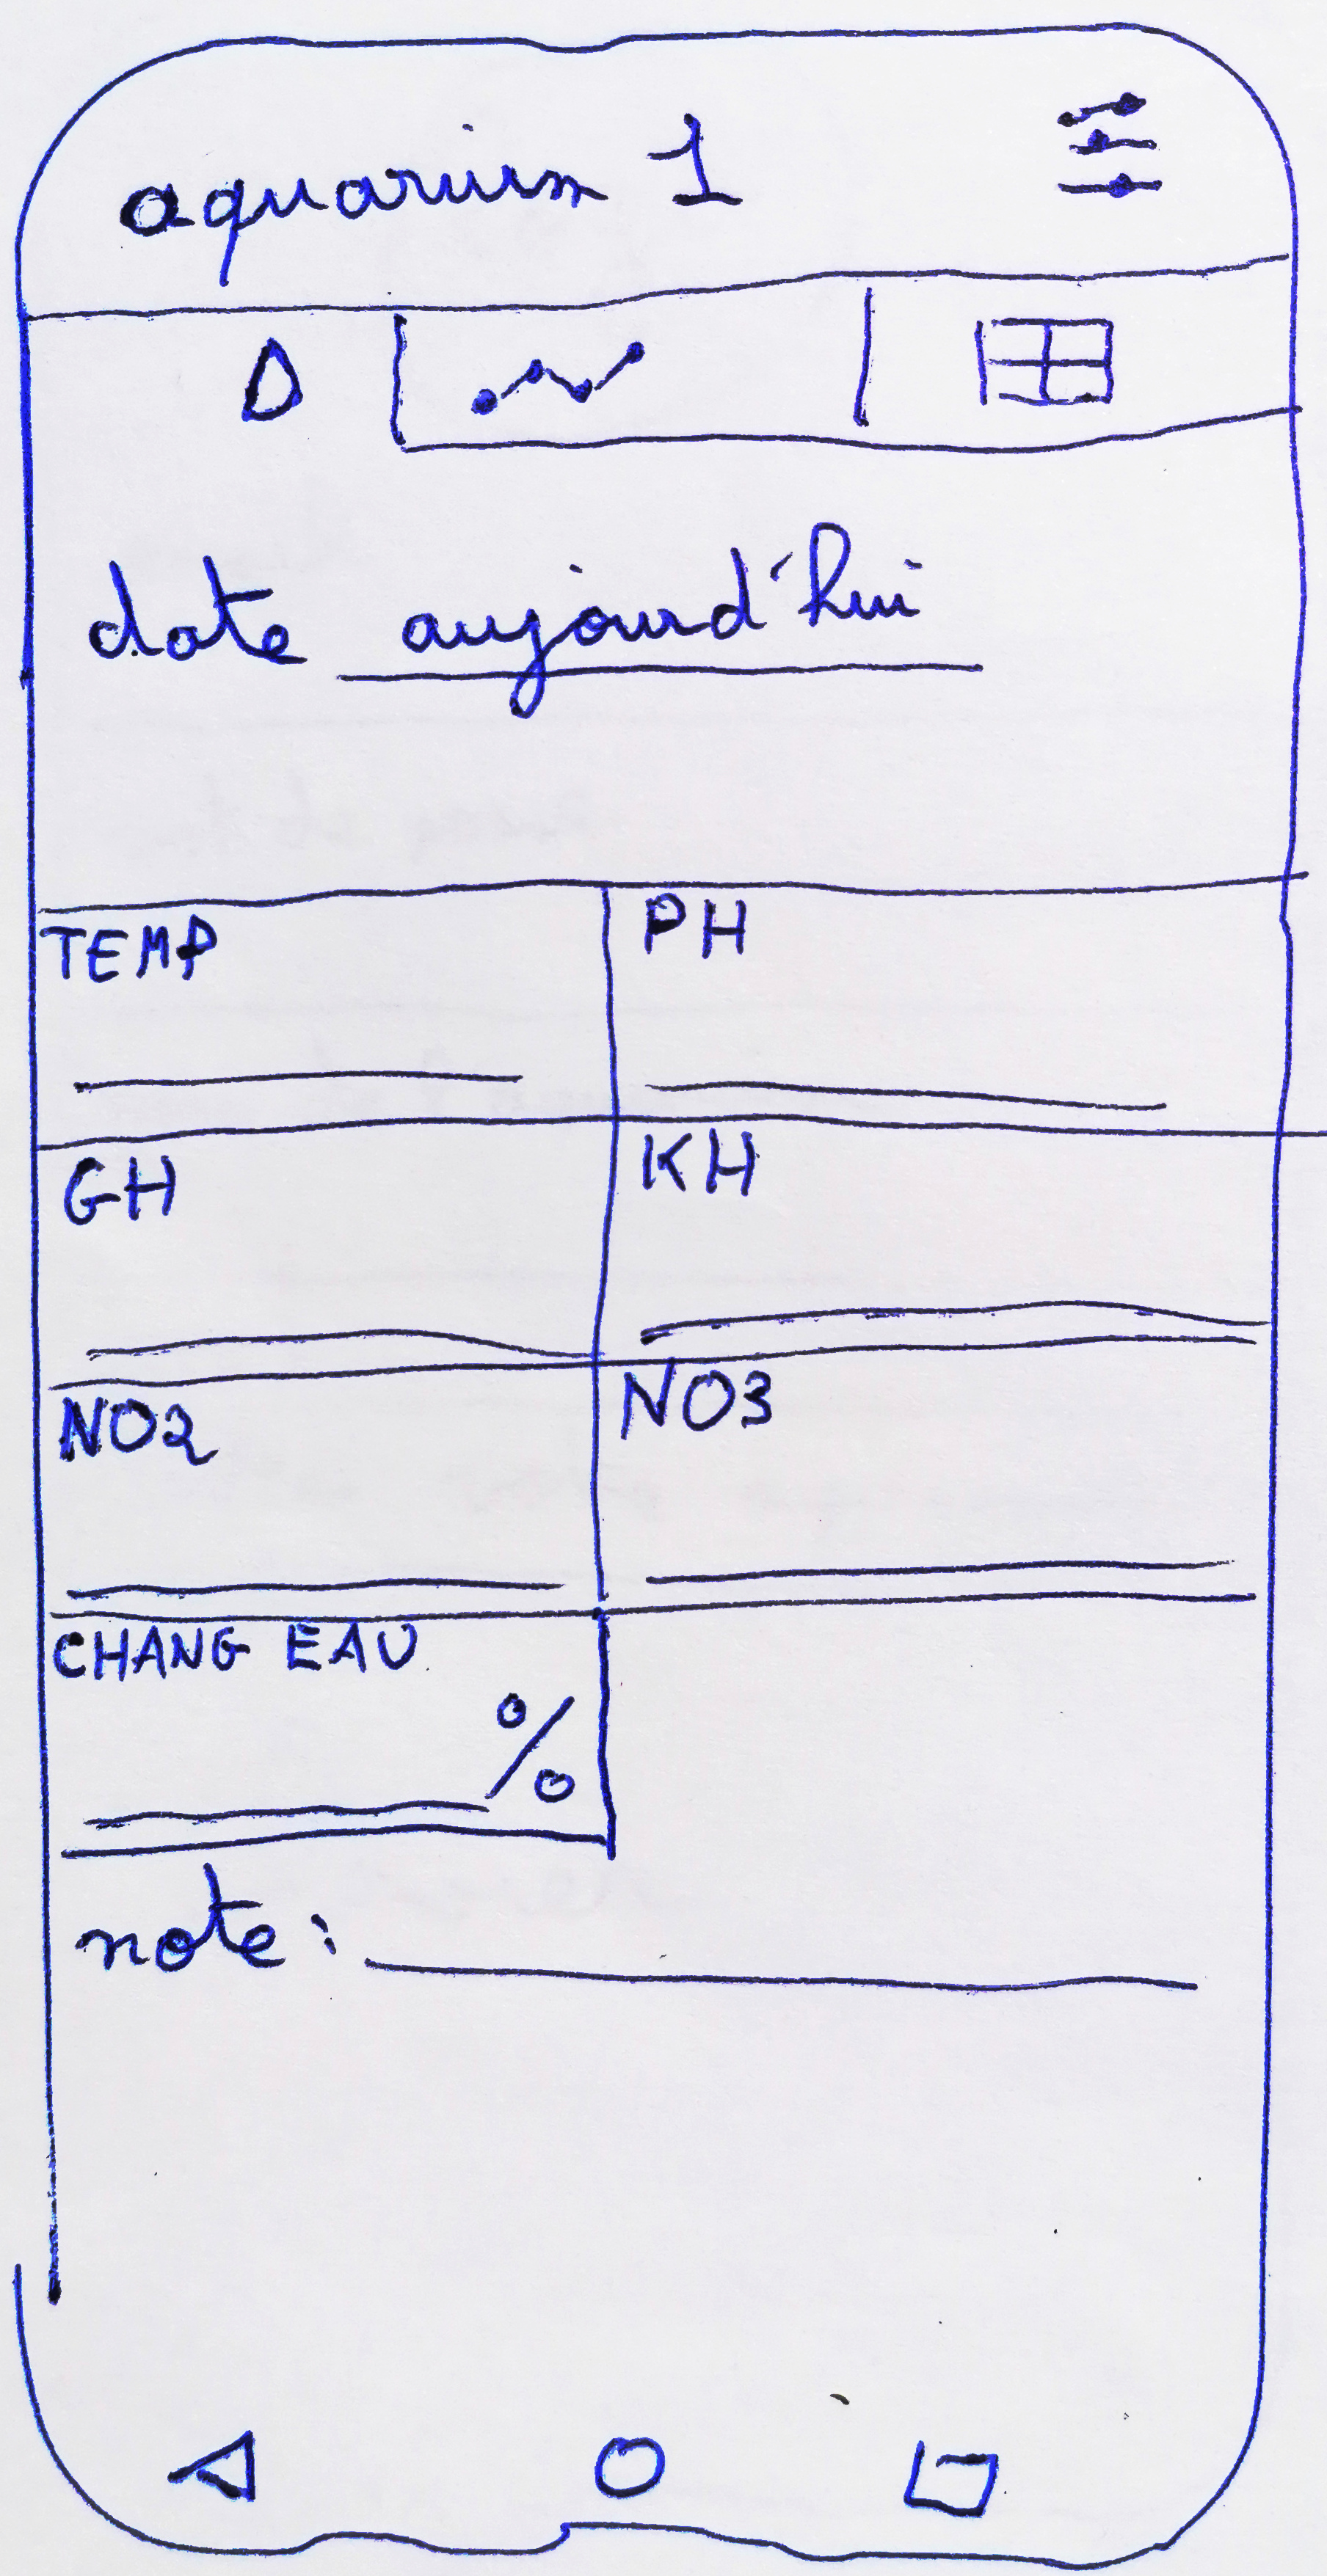 aquarium 1
date aujourd'hui
TEMP PH
GH KH
NO2 NO3
CHANG EAU
%
note :